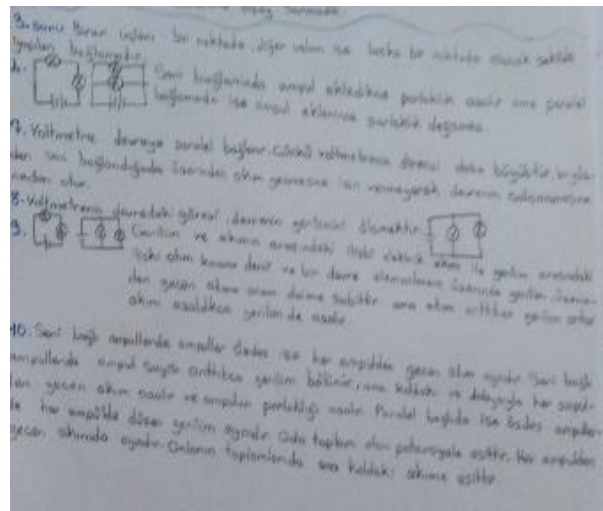 3. soru: Birer uçları bir noktada, diğer uçları ise başka bir noktada olacak şekilde
yapılan bağlamadır.
4. Seri bağlamada ampul ekledikçe parlaklık azalır ama paralel
bağlamada ise ampul eklenince parlaklık değişmez.
7. Voltmetre devreye paralel bağlanır. Çünkü voltmetrenin direnci daha büyüktür, bu yüz-
den seri bağlandığında üzerinden akım geçmesine izin vermeyerek devrenin çalışmamasına
neden olur.
8. Voltmetrenin devredeki görevi devrenin gerilimini ölçmektir.
9. Gerilim ve akımın arasındaki ilişki elektrik akım ile gerilim arasındaki
ilişki ohm kanunu denir ve bir devre elemanının üzerinde gerilim üzerin-
den geçen akıma oranı daima sabittir ama akım arttıkça gerilim artar
akım azaldıkça gerilim de azalır.
10. Seri bağlı ampullerde ampuller özdeş ise her ampulden geçen akım aynıdır. Seri bağlı
ampullerde ampul sayısı arttıkça gerilim bölünür, ana koldaki ve dolayısıyla her ampul-
den geçen akım azalır ve ampulün parlaklığı azalır. Paralel bağlıda ise özdeş ampuller-
de her ampulde düşen gerilim aynıdır. Oda toplam olan potansiyele eşittir. Her ampulden
geçen akımda aynıdır. Onların toplamlarıda ana koldaki akıma eşittir.